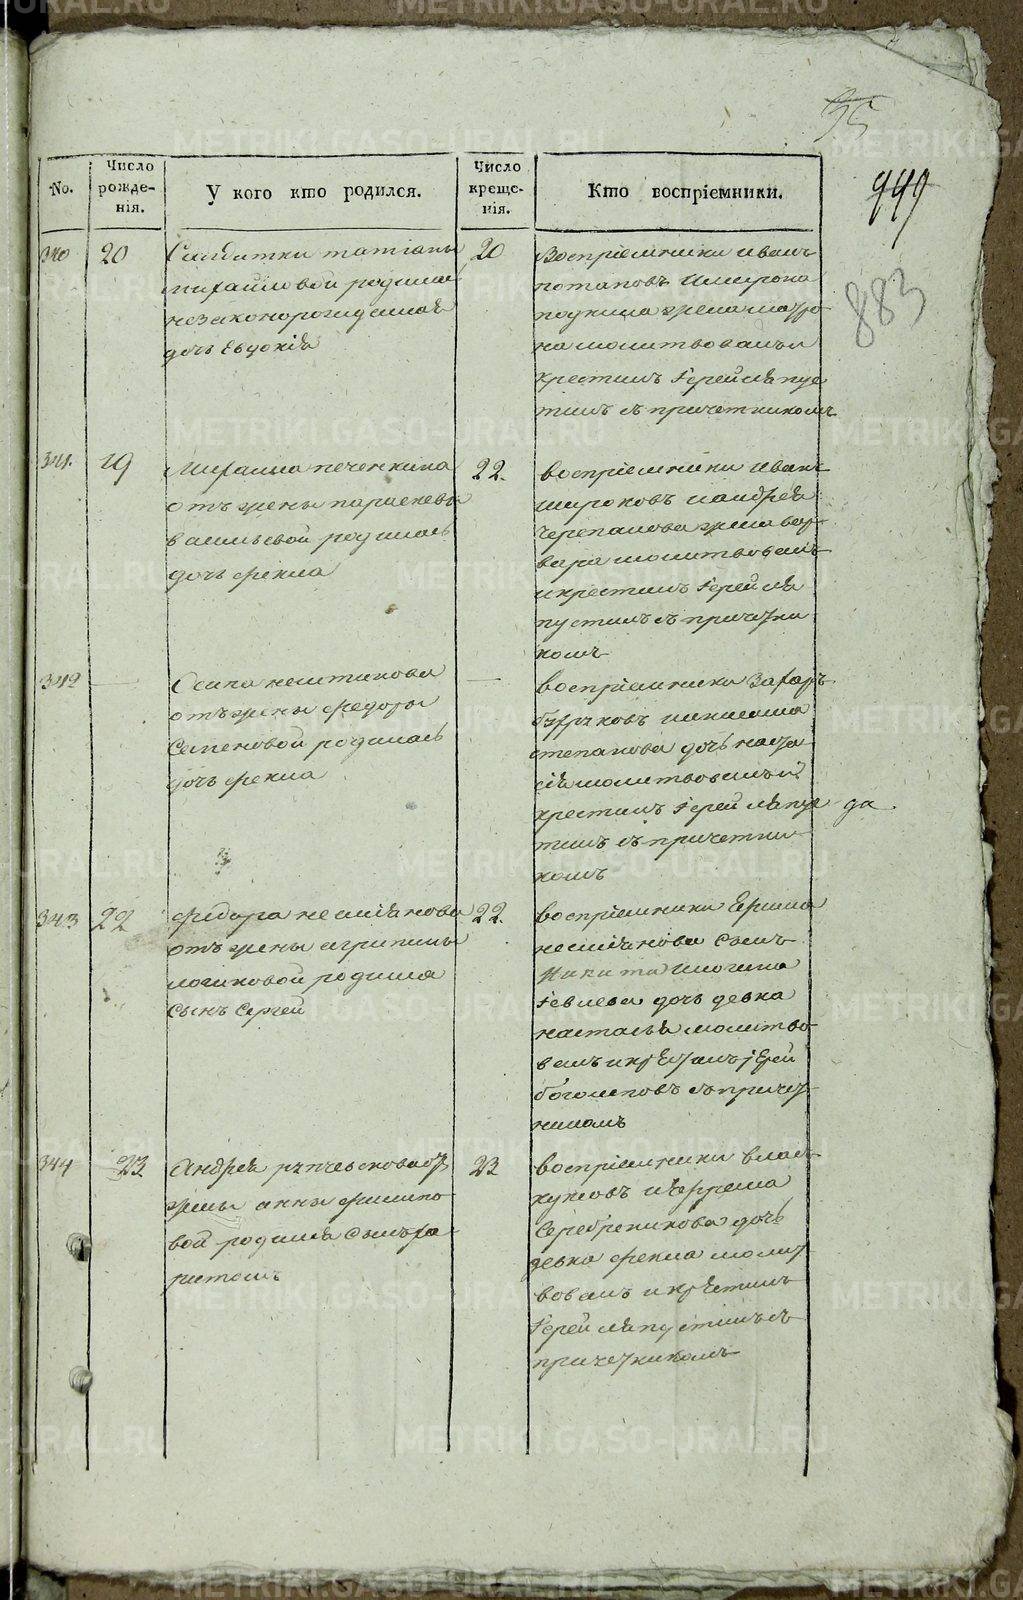 95
No.
Число рожде-нія.
У кого кто родился.
Число креще-нія.
Кто воспріемники.
999
883
340
20
Салдатки татіаны
михайловой родилась
незаконорожденная
дочь Евдокія
20
Воспріемники иванъ
потаповъ
жена матро-
на молитвовалъ и
крестилъ Іерей лапу
тинъ съ причетникомъ
341.
19
Михаила печенкина
отъ жены параскевы
васильевой родилась
дочь фекла
22.
воспріемники иванъ
широковъ и андрея
черепанова жена вар-
вара молитвовалъ
и крестилъ Іерей ла
путинъ съ причетни
комъ
342
—
Осипа
отъ жены федоры
Семеновой родилась
дочь фекла
—
воспріемники Захаръ
степанова дочь наста
сія молитвовалъ и
крестилъ Іерей лапу
да.
тинъ съ причетни-
комъ
343
22
федора
отъ жены агрипины
логиновой родился
сынъ Сергей
22.
воспріемники
сынъ
Никита
дочь девка
настасья молитво-
валъ и крестилъ іерей
боголеповъ съ причет-
никомъ
344
23
Андрея
жены анны филипо-
вой родился сынъ ха-
ритонъ
23
воспріемники
Серебреникова дочь
девка фекла молит-
вовалъ и крестилъ
Іерей лапутинъ съ
причетникомъ
METRIKI.GASO-URAL.RU